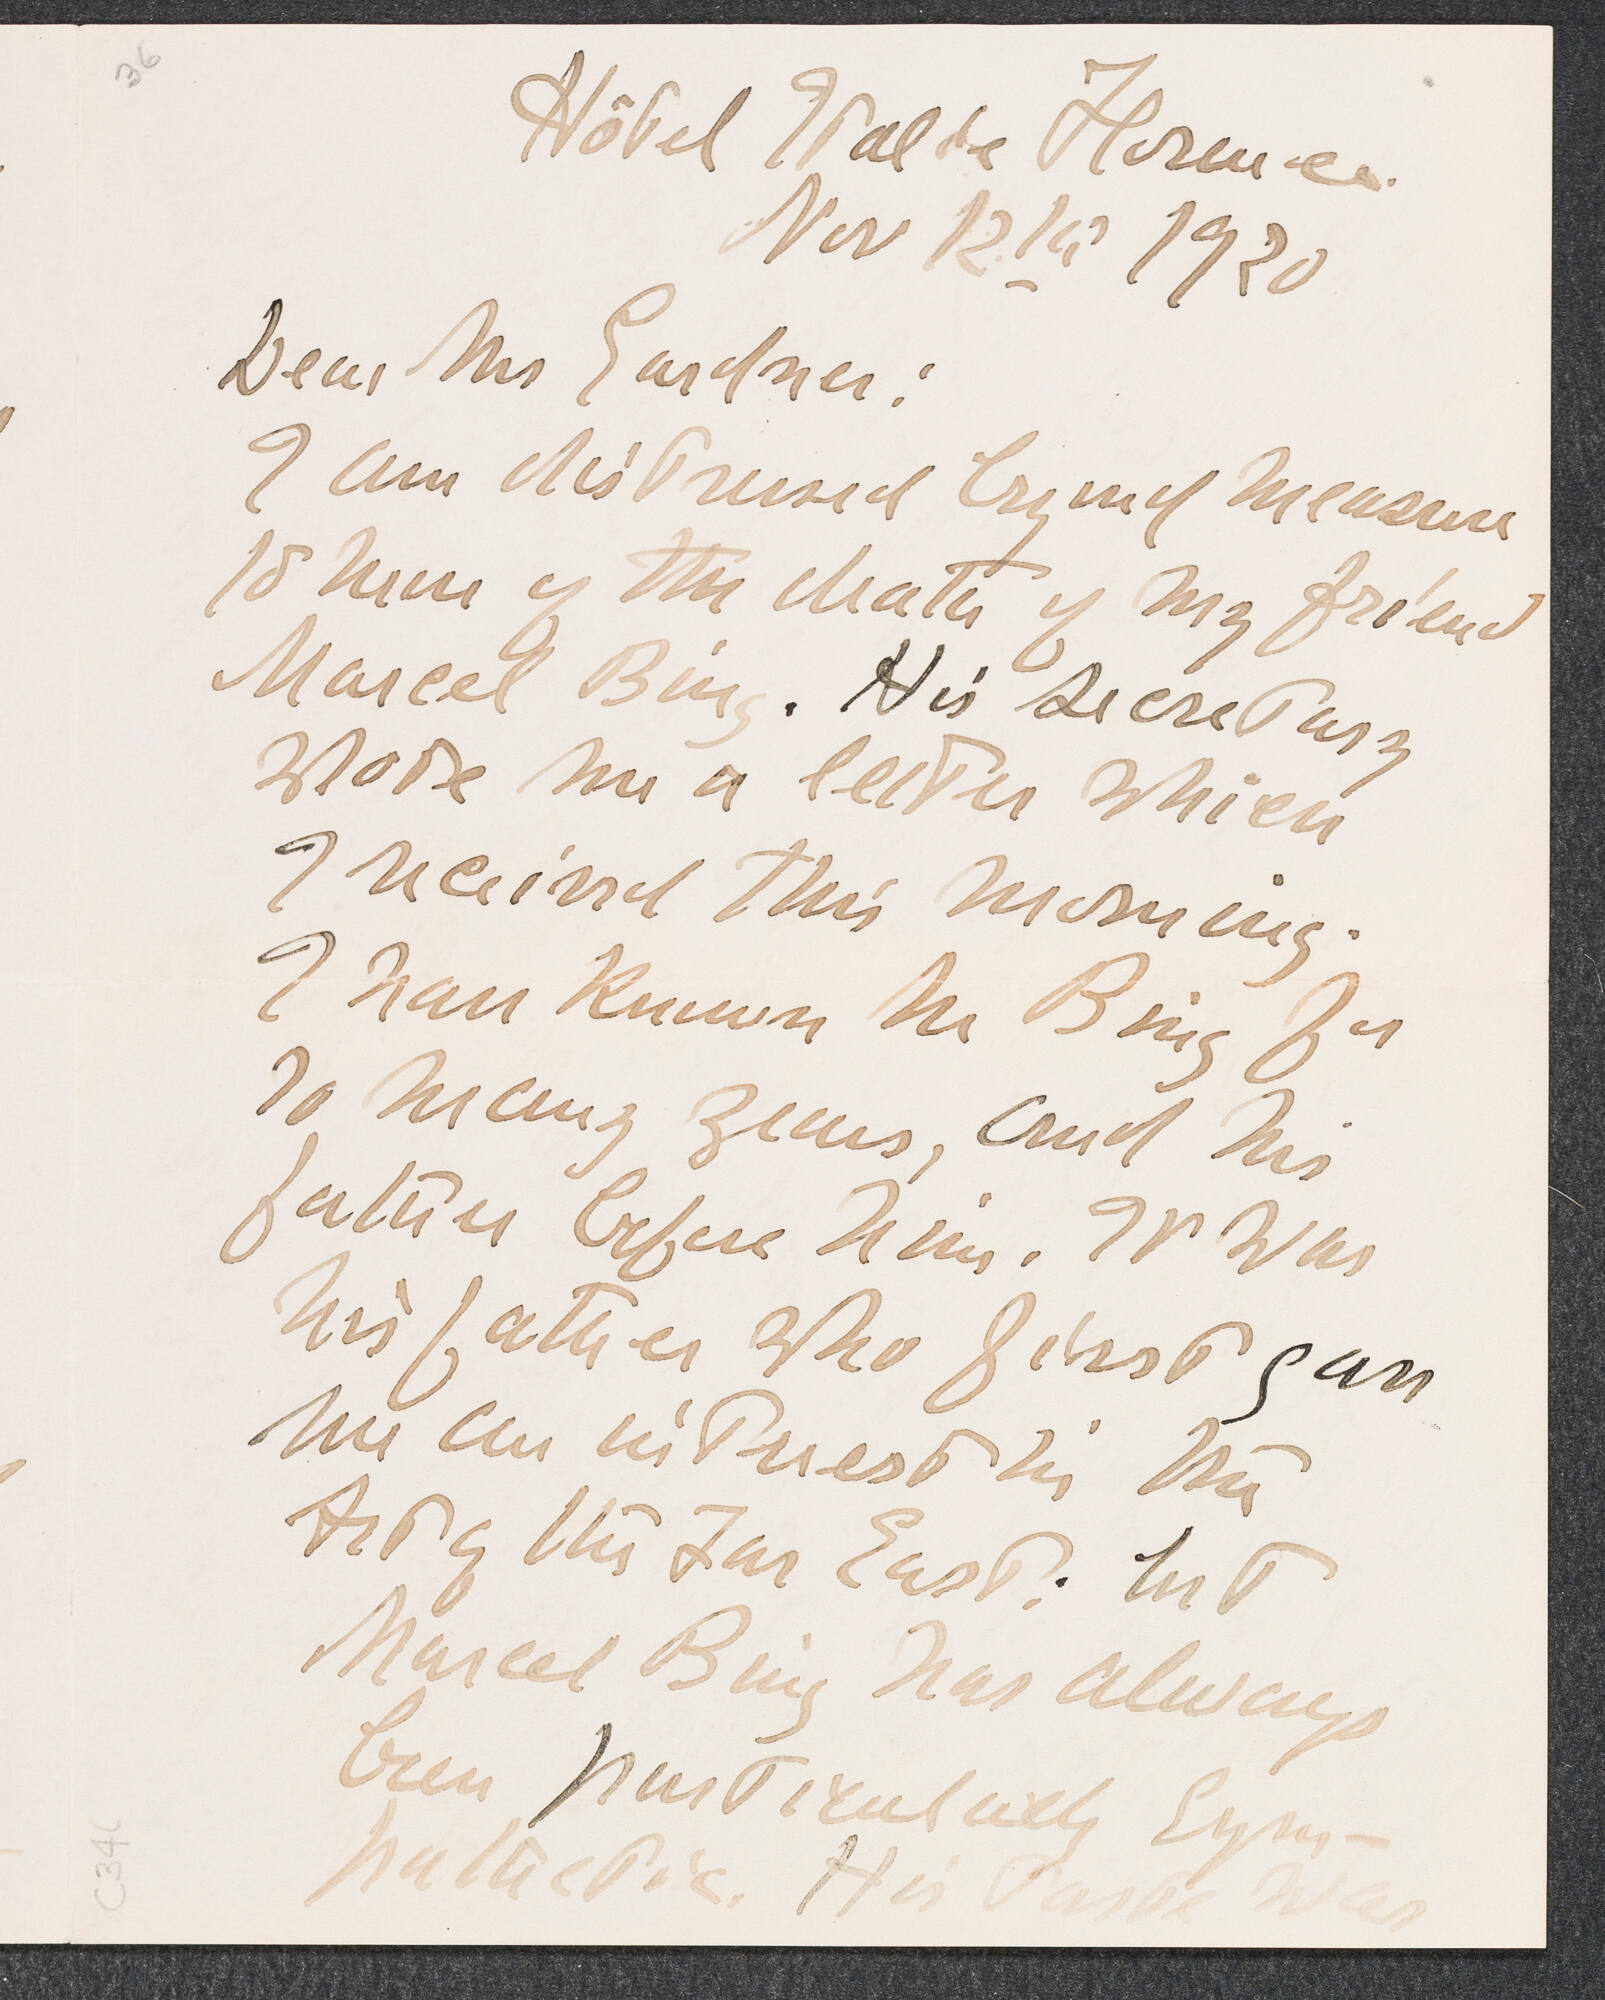 36
Hôtel Italie Florence.
Nov 12th 1920
Dear Mrs Gardner:
I am distressed beyond measure
to hear of the death of my friend
Marcel Bing. His secretary
wrote me a letter which
I received this morning.
I have known Mr Bing for
so many years, and his
father before him. It was
his father who first gave
me an interest in the
Art of the Far East. but
Marcel Bing has always
been particularly sym-
pathetic. His taste was